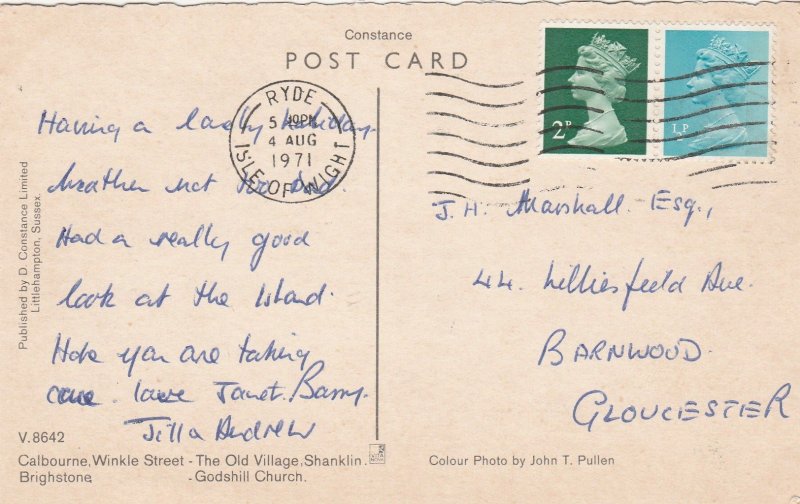 Constance
POST CARD
RYDE
5 - PM
4 AUG
1971
ISLE OF WIGHT
2P
½P
Having a lovely holiday.
Weather not too bad.
Had a really good
look at the Island.
Hope you are taking
care. love Janet. Barry.
Jilla Andrew
J. H. Marshall. Esq.,
44. Lilliesfield Ave.
BARNWOOD.
GLOUCESTER
Published by D. Constance Limited
Littlehampton, Sussex.
V.8642
Calbourne, Winkle Street - The Old Village, Shanklin.
Brighstone. - Godshill Church.
Colour Photo by John T. Pullen